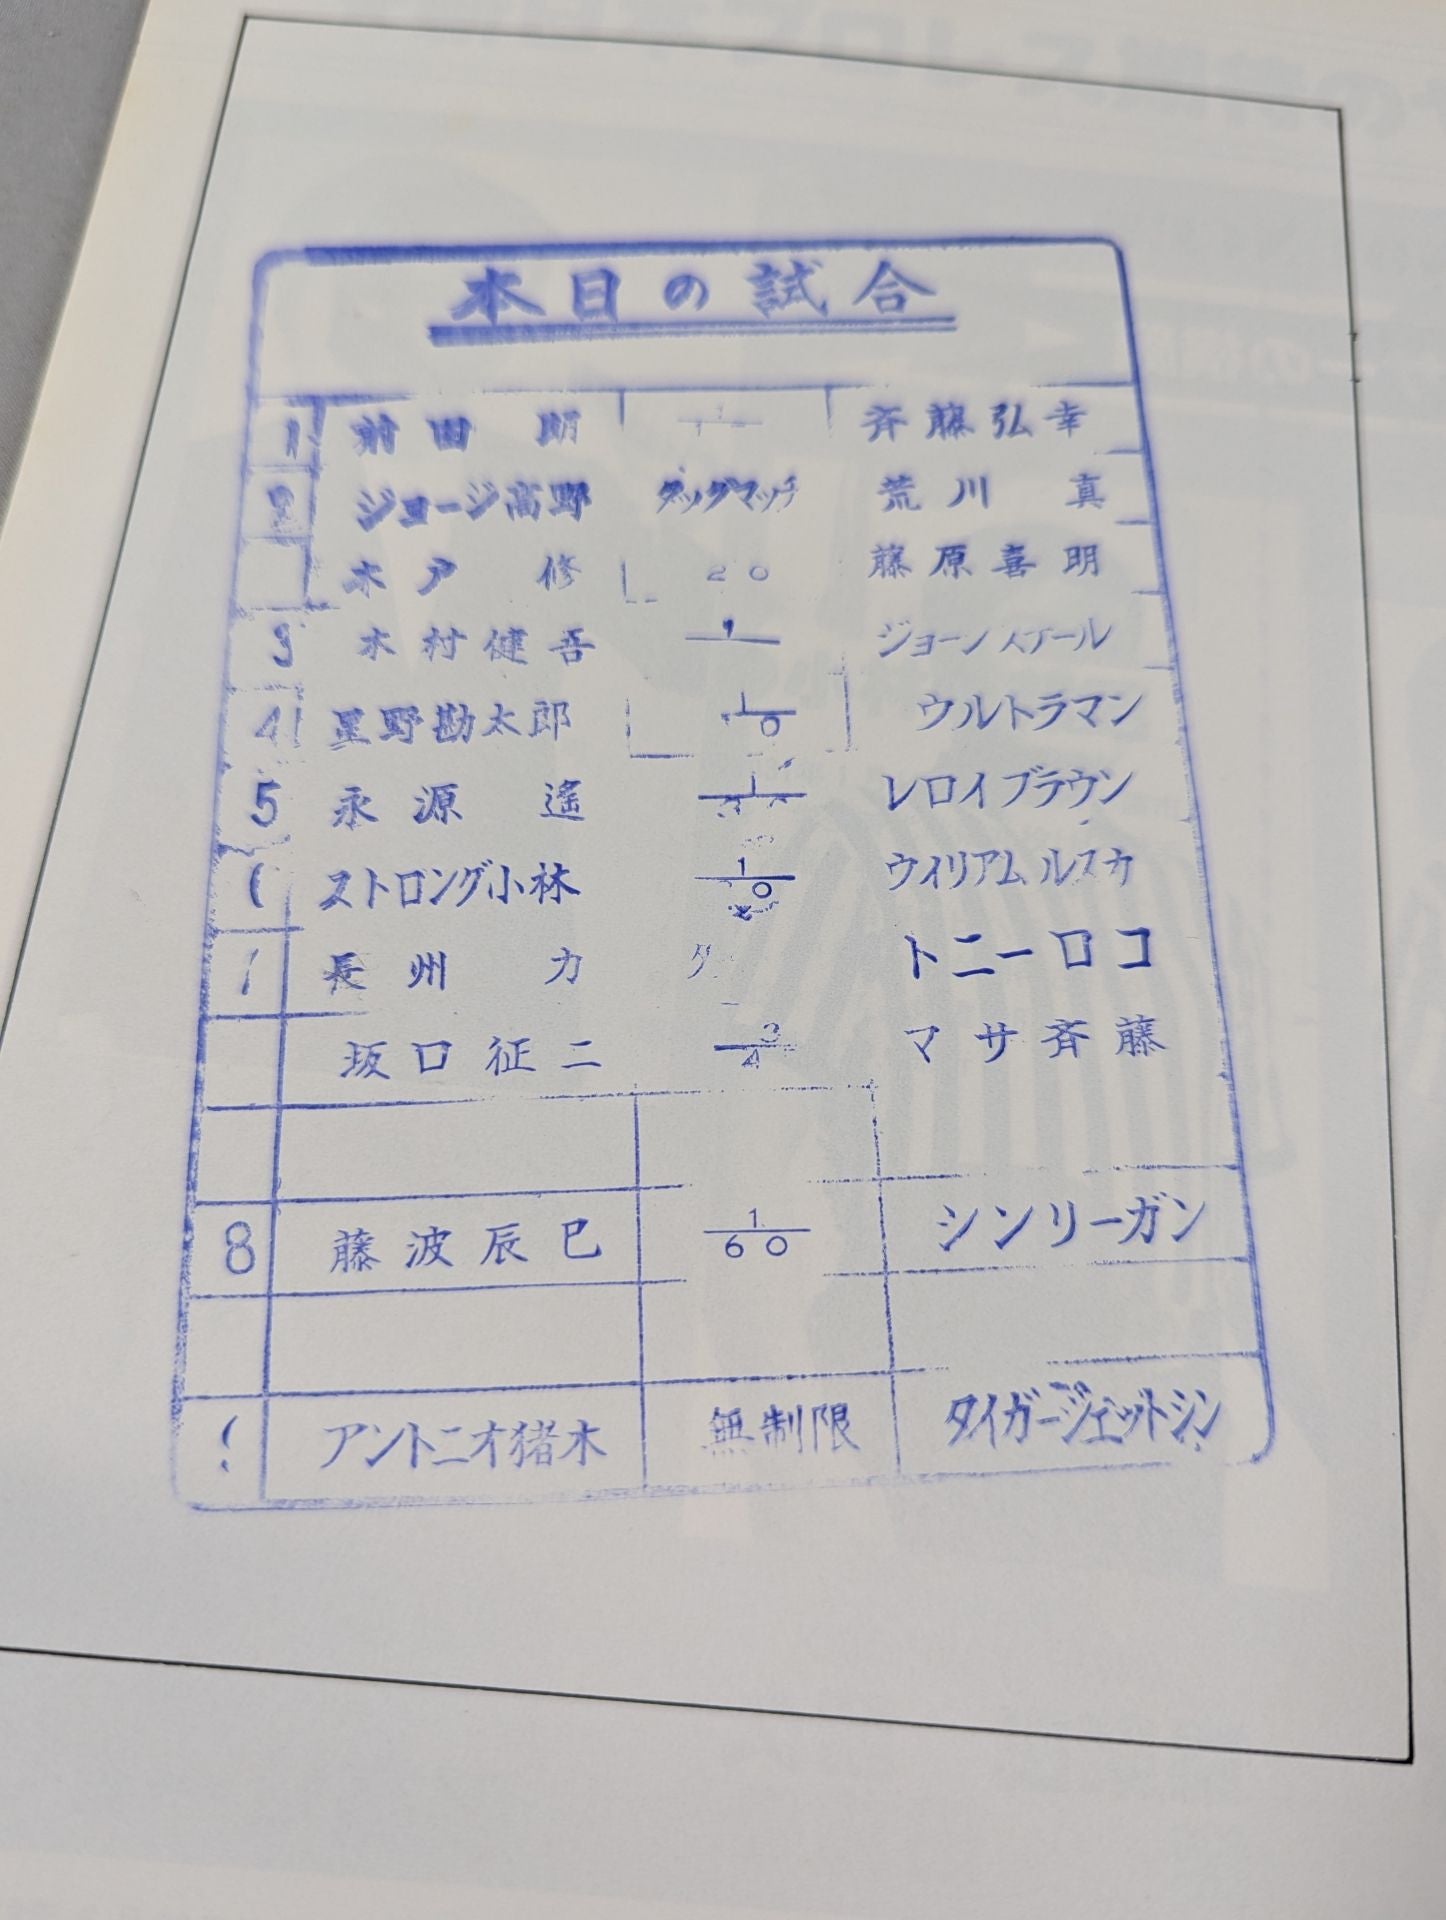 本日の試合
1 前田 明 斉藤弘幸
2 ジョージ高野 タッグマッチ 荒川 真
木戸 修 20 藤原喜明
3 木村健吾 1 ジョーン
4 星野勘太郎 1 0 ウルトラマン
5 永源 遙 1 レロイブラウン
ストロング小林 1 0 ウイリアムルスカ
長州 力 タ トニーロコ
坂口征二 3 4 マサ斉藤
8 藤波辰巳 1 60 シンリーガン
アントニオ猪木 無制限 タイガージェットシン